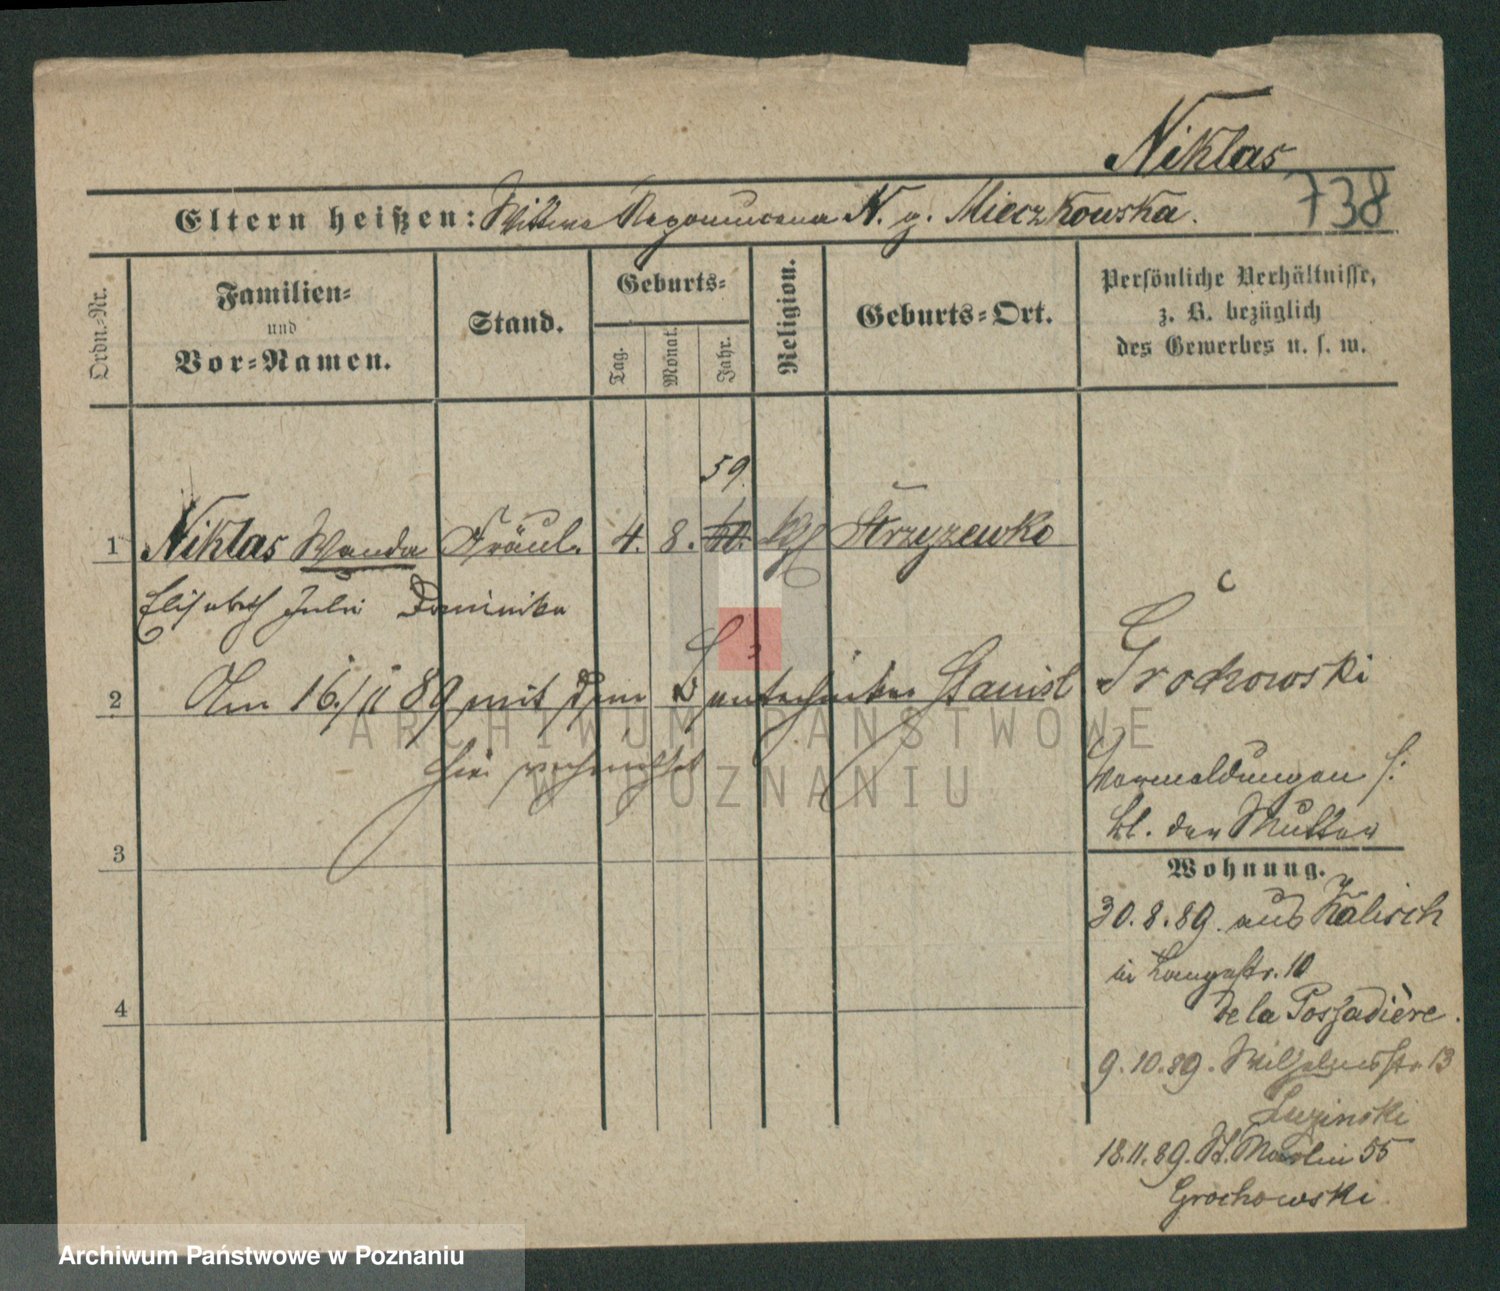 Niklas
738
Eltern heißen: Wittwe N. g. Mieczkowska.
Ordn.-Nr.
Familien-
und
Vor-Namen.
Stand.
Geburts-
Tag.
Monat.
Jahr.
Religion.
Geburts-Ort.
Persönliche Verhältnisse,
z. B. bezüglich
des Gewerbes u. s. w.
59.
1 Niklas Wanda Fräul. 4. 8. 60. kth Strzyzewko
Elisabeth Julie Dominika
2 Am 16/11 89 mit dem Stanisl Grochowski
hier verheirathet
Vormeldungen s:
bl. der Mutter
3
Wohnung.
30.8.89. aus Kalisch
in Langestr. 10
de la Possadière.
4
9.10.89. Wilhelmstr. 13
18.11.89. St. Martin 55
Grochowski
ARCHIWUM PAŃSTWOWE
W POZNANIU
Archiwum Państwowe w Poznaniu